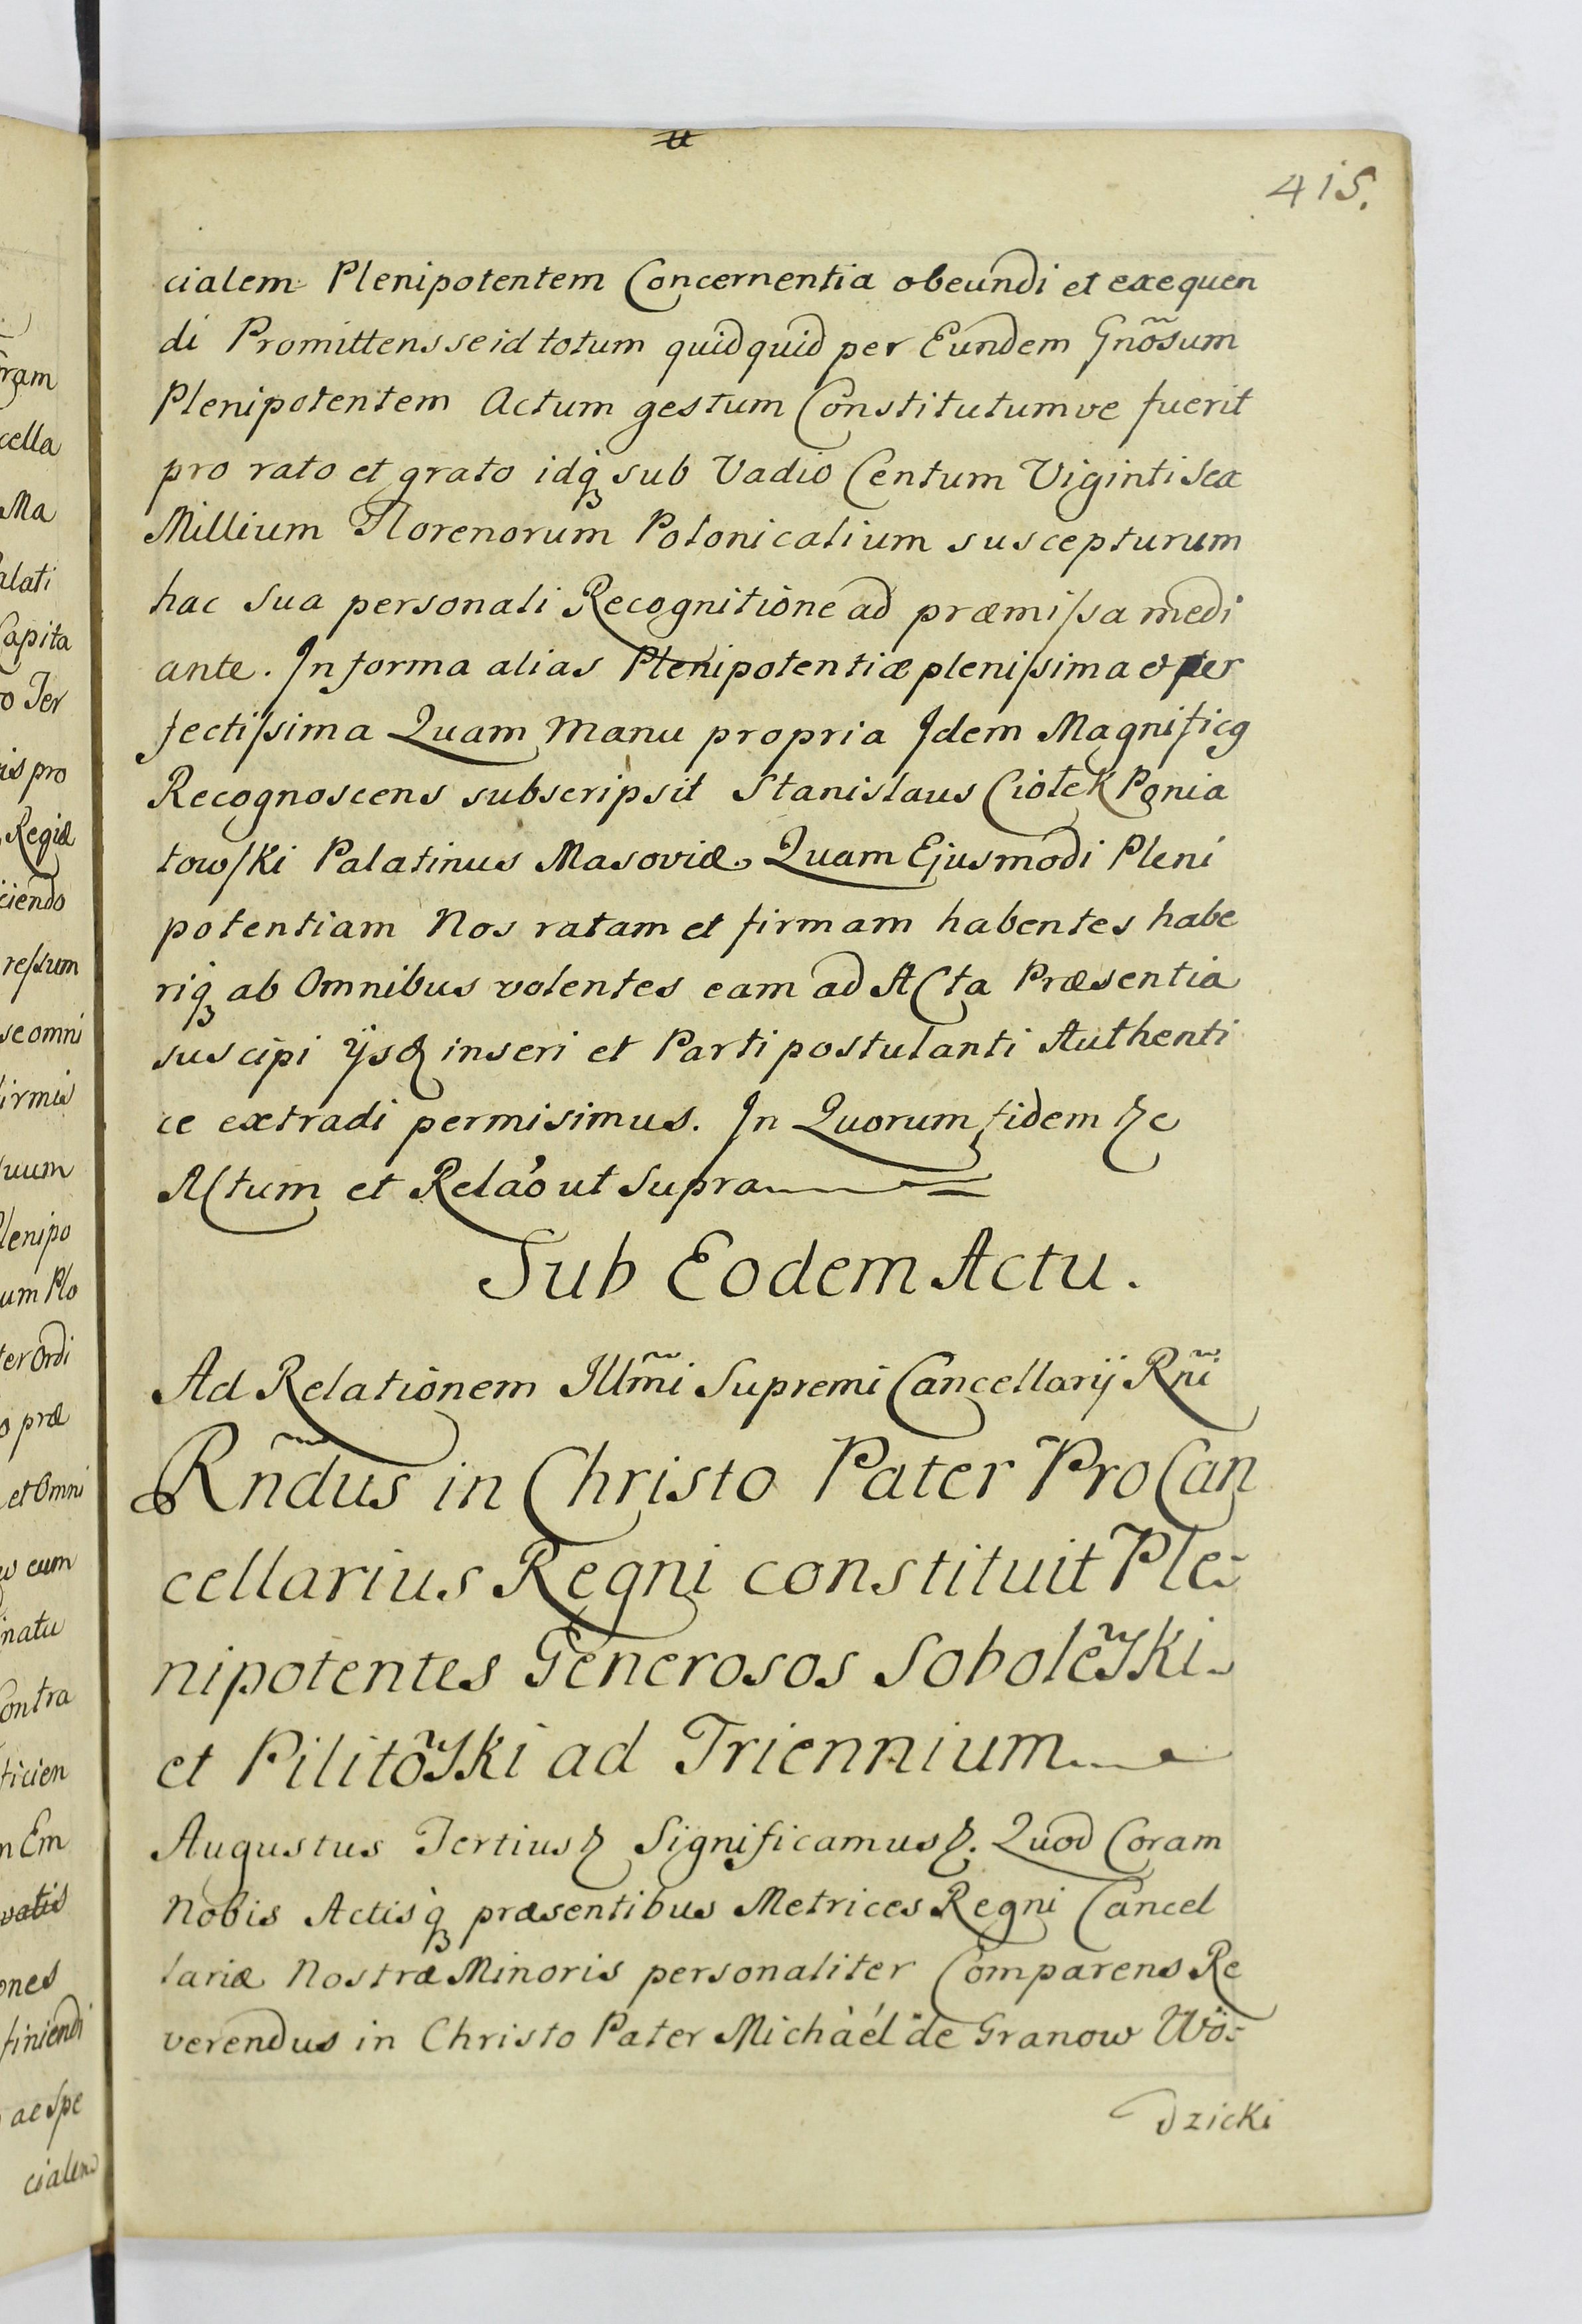 415.
cialem Plenipotentem Concernentia obeundi et exequen
di Promittens se id totum quidquid per Eundem Gnõsum
Plenipotentem Actum gestum Constitutumve fuerit
pro rato et grato idq3 sub Vadio Centum Viginti Sex
Millium Florenorum Polonicalium suscepturum
hac sua personali Recognitione ad præmissa medi
ante. In forma alias Plenipotentiæ plenissima et per
fectissima Quam Manu propria Idem Magnificq
Recognoscens subscripsit Stanislaus Ciołek Ponia
towski Palatinus Masoviæ. Quam Ejusmodi Pleni
potentiam Nos ratam et firmam habentes habe
riq3 ab Omnibus volentes eam ad Acta Præsentia
suscipi ijsq3 inseri et Parti postulanti Authenti
ce extradi permisimus. In Quorum fidem &c
Actum et Relaõ ut Supra
Sub Eodem Actu.
Ad Relationem Illm̃i Supremi Cancellarij Rñi
Rñdus in Christo Pater ProCan
cellarius Regni constituit Ple-
nipotentes Generosos Sobolẽski
et Pilitõski ad Triennium
Augustus Tertius & Significamus &. Quod Coram
Nobis Actisq3 præsentibus Metrices Regni Cancel
lariæ Nostræ Minoris personaliter Comparens Re
verendus in Christo Pater Michàél de Granow Wo-
dzicki